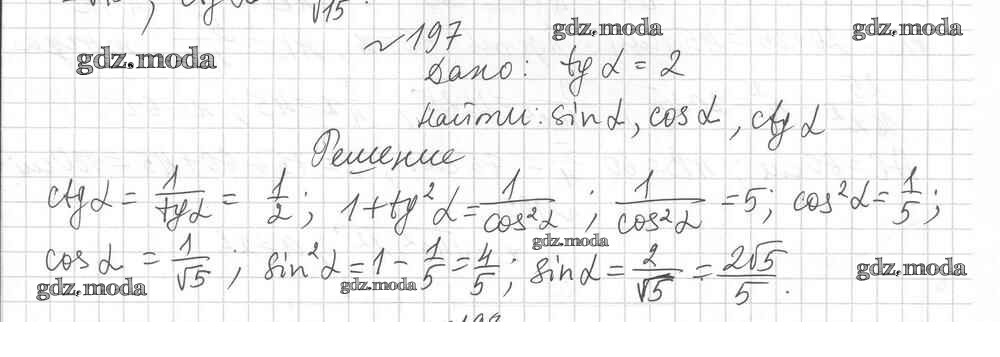 √15
gdz.moda
gdz.moda
№ 197
gdz.moda
Дано: tg α = 2
Найти: sin α, cos α, ctg α
Решение
ctg α = 1/tg α = 1/2; 1 + tg² α = 1/cos² α; 1/cos² α = 5; cos² α = 1/5;
gdz.moda
cos α = 1/√5; sin² α = 1 - 1/5 = 4/5; sin α = 2/√5 = 2√5/5.
gdz.moda
gdz.moda
gdz.moda